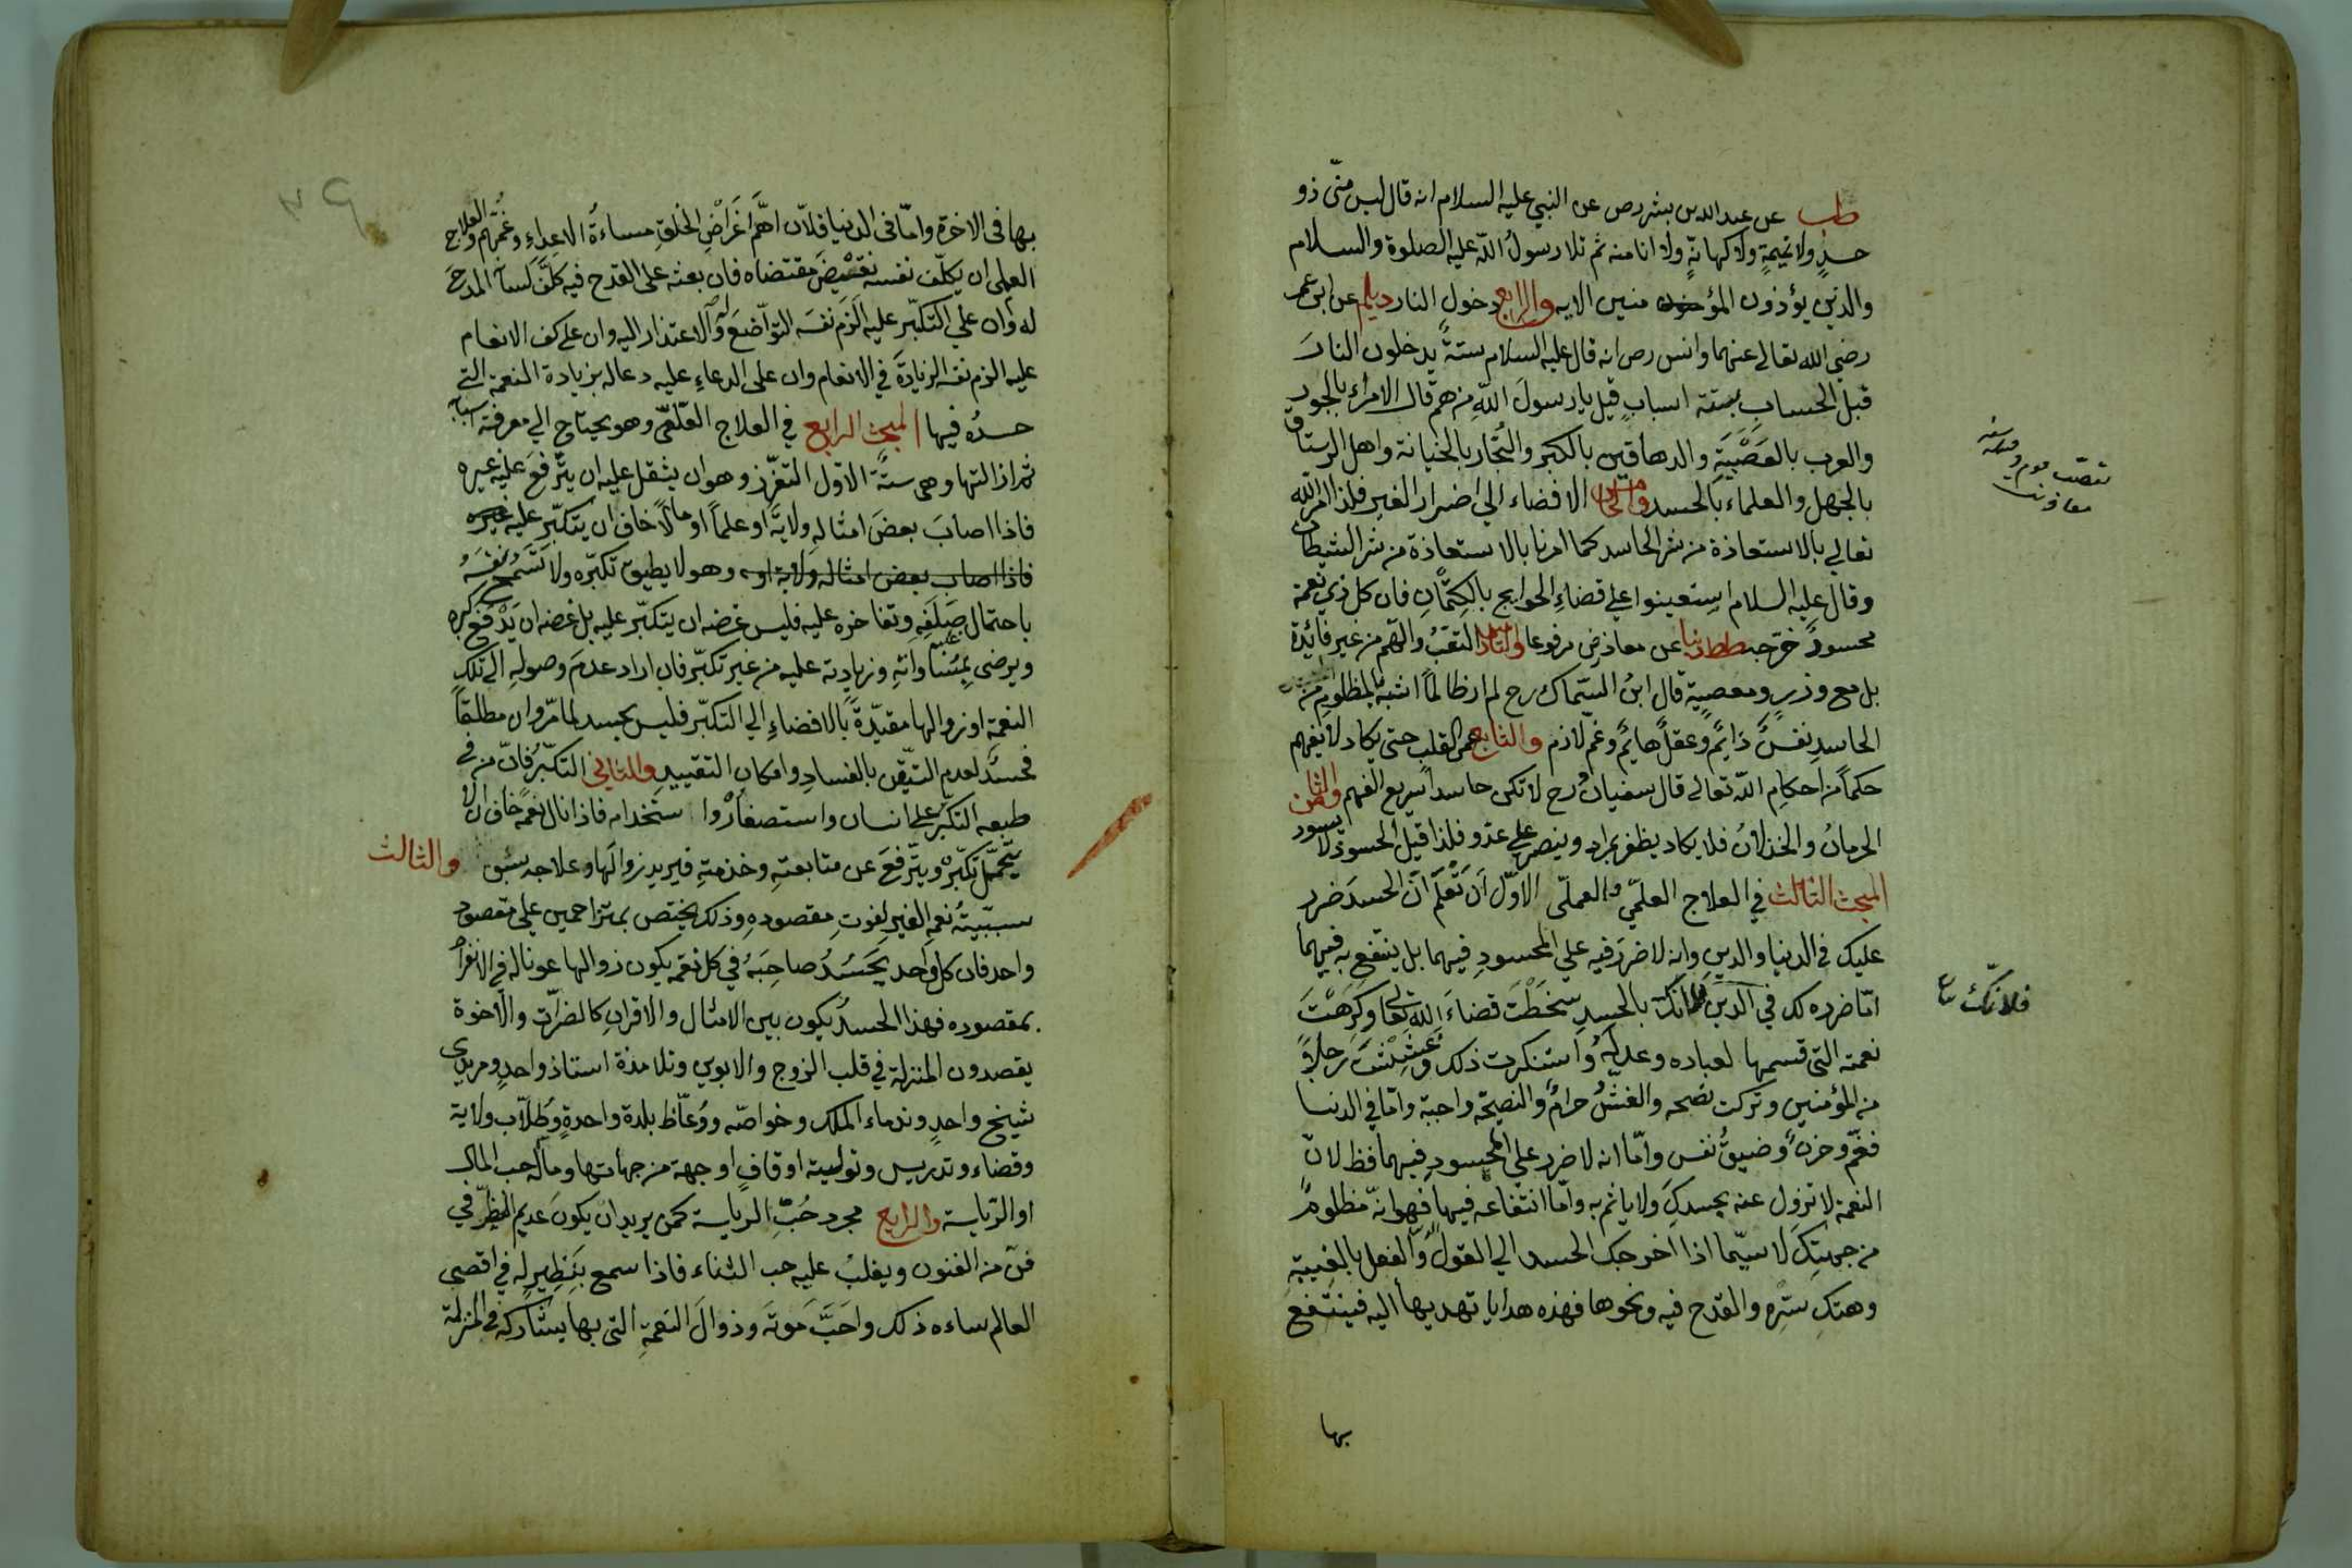 طب عن عبد الله بن بشر رص عن النبي عليه السلام انه قال ليس منى ذو
حسد ولا نميمةٍ ولا كهانةٍ ولا انا منه ثم تلا رسولُ اللّه عليه الصلوة والسلام
والذين يؤذون المؤمنين الايه والرابع دخول النار ديلم عن ابن عمر
رضي الله تعالى عنهما وانس رص انه قال عليه السلام ستةً يدخلون النارَ
قبل الحساب بستة اسبابٍ قيل يا رسولَ اللّهِ من هم قال الامراء بالجور
والعرب بالعَصَبيَّةِ والدهاقين بالكبر والتُّجّار بالخيانة واهل الرستاق
بالجهل والعلماء بالحسد والخامس الافضاء الي اضرار الغير فلذا امر الله
تعالي بالاستعاذة من شر الحاسد كما امرنا بالاستعاذة من شر الشيطان
وقال عليه السلام استعينوا علي قضاءِ الحوايج بالكِتْمَانِ فان كل ذي نعمة
محسودٌ خرّجه طط دنيا عن معاذ رض مرفوعا والسادس التعَبُ والهَم من غير فائدة
بل مع وزرٍ ومعصيةٍ قال ابنُ السّماك رح لم ار ظالماً اشبهَ بالمظلوم من
الحاسدِ نفسٌ دَايمٌ وعقلٌ هايمٌ وغمٌّ لازم والسابع عمى القلب حتى يكاد لا يفهم
حكماً من احكامِ اللّه تعالى قال سفيان رح لا تكن حاسداً سريع الفهم والثامن
الحرمانُ والخذلانُ فلا يكاد يظفر بمراد وينصر علي عدو فلذا قيل الحسود لا يسود
المبحث الثالث في العلاج العلمّي والعملّى الاوّل اَن تَعْلَم اَنَّ الحسدَ ضرر
عليك فى الدنيا والدينِ وانه لا ضررَ فيه علي المحسودِ فيهما بل ينتفع به فيهما
امّا ضرره لك في الدّين فلانّك بالحسدِ سخَطْتَ قضاءَ اللّهِ تعالى وكرِهْتَ
نعمته التى قسمها لعباده وعدله واستنكرت ذلك وغششتَ رجلاً
من المؤمنين وتركت نصحه والغشّ حرامٌ والنصيحة واجبة وامّا في الدنيا
فغمٌّ وحزنٌ وضيقُ نفس وامّا انه لا ضرر علي المحسودِ فيهما فظ لانّ
النعمة لا تزول عنه بحسدكَ ولا ياثم به وامّا انتفاعه فيهما فهو انّه مظلومٌ
من جهتِكَ لا سيّما اذا اخرجك الحسد الي القول والفعل بالغيبةِ
وهتكِ سترِه والقدح فيه ونحوها فهذه هدايا تهديها اليه فينتفع
بها
تعصّب
معاونت
فلانّك
بها فى الاخرة وامّا فى الدنيا فلاّن اهمَّ اغَراَضِ الخلقِ مساءةُ الاعداءِ وغمّهم والعلاج
العملى ان يكلّف نفسه نقيضَ مقتضاه فان بعثه على القدح فيه كلَّف لسانَه المدحَ
له وان علي التكبّرِ عليه الزمَ نفسَه التواضعَ له والاعتذار اليه وان على كف الانعام
عليه الزم نفسه الزيادةَ في الانعام وان على الدعاءِ عليه دعا له بزيادة النعمة التي
حسدُه فيها المبحث الرابع في العلاج القلعّى وهو يحتاج الي معرفة اسبابه
ثم ازالتها وهي ستَّة الاوّل التعزّز وهو ان يثقل عليه ان يترفعَ عليه غيره
فاذا اصابَ بعضَ امثالهِ ولايةً او علماً او مالاً خاف ان يتكبّر عليه
فاذا اصاب بعض امثاله ولاية او وهو لا يطيق تكبّره ولا تَسْمَحُ نفسُهُ
باحتمال صَلَفِهِ وتفاخره عليه فليس غرضه ان يتكبّر عليه بل غرضه ان يَدْفعَ كبره
ويرضى بمساواتهِ وزيادته عليه من غير تكبّر فان اراد عدمَ وصولهِ الى تلك
النعمة او زوالها مقيّدةً بالافضاءِ الي التكبّر فليس بحسد لما مرّ وان مطلقاً
فحسدٌ لعدمِ التيقّنِ بالفسادِ وامكانِ التقييد والثاني التكبّرُ فانّ من في
طبعه التكبّر على انسان واستصغارُه واستخدامه فاذا نال نعمة خاف ان لا
يتحمّل تكبّره ويترفعَ عن متابعتهِ وخدمتهِ فيريد زوالَها وعلاجه سبق والثالث
سببيّةُ نعم الغيرِ لفوتِ مقصودهِ وذلك يختص بمتزاحمين علي مقصود
واحد فان كل واحد يَحَسُدُ صاحِبَهُ في كل نعمة يكون زوالها عونا له في الانفراد
بمقصوده فهذا الحسدُ يكون بين الامثال والاقرانِ كالضرّات والاخوة
يقصدون المنزلة في قلب الزوج والابوين وتلامذة استاذ واحدٍ ومريدى
شيخ واحدٍ وندماء الملك وخواصّه ووُعّاظ بلدة واحدةٍ وطُلاّب ولاية
وقضاء وتدريس وتولية اوقافٍ او جهة من جهاتها ومآله حب المال
او الرّياسة والرابع مجرد حُبِّ الرياسة كمن يريد ان يكون عديم النظير في
فنّ من الفنون ويغلبُ عليه حب الثناء فاذا سمع بنَظِيرٍ له في اقصى
العالم ساءه ذلك واحَبَّ موتَه وذوالَ النعمةِ التى بها يشاركه في المنزلة